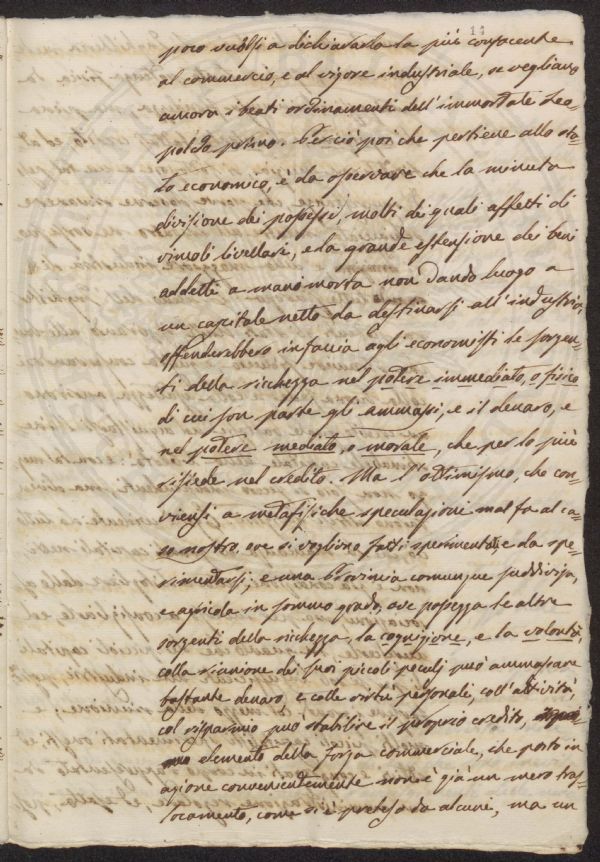 11
poco vuolsi a dichiararla la più confacente
al commercio, e al vigore industriale, se vegliano
ancora i beati ordinamenti dell'immortale Leo-
poldo primo. Perciò poi che pertiene allo sta-
to economico, è da osservare che la minuta
divisione dei possessi, molti de quali affetti di
vincoli livellari, e la grande estensione dei beni
addetti a mano morta non dando luogo a
un capitale netto da destinarsi all'industria,
offenderebbero in faccia agli economisti le sorgen-
ti della ricchezza nel potere immediato, o fisico
di cui son parte gli ammassi, e il denaro, e
nel potere mediato, o morale, che per lo più
risiede nel credito. Ma l'ottimismo, che con-
viensi a metafisiche speculazione mal fa al ca-
so nostro, ove si vogliono fatti sperimentati, e da spe-
rimentarsi; e una Provincia comunque suddivisa,
e agricola in sommo grado, ove possegga le altre
sorgenti della ricchezza, la cognizione, e la volontà,
colla riunione dei suoi piccoli peculj può ammassare
bastante denaro, e colle virtù personali, coll'attività,
col risparmio può stabilire il proprio credito,
elemento della forza commerciale, che posto in
azione convenientemente non è già un mero tras-
locamento, come si è preteso da alcuni, ma un